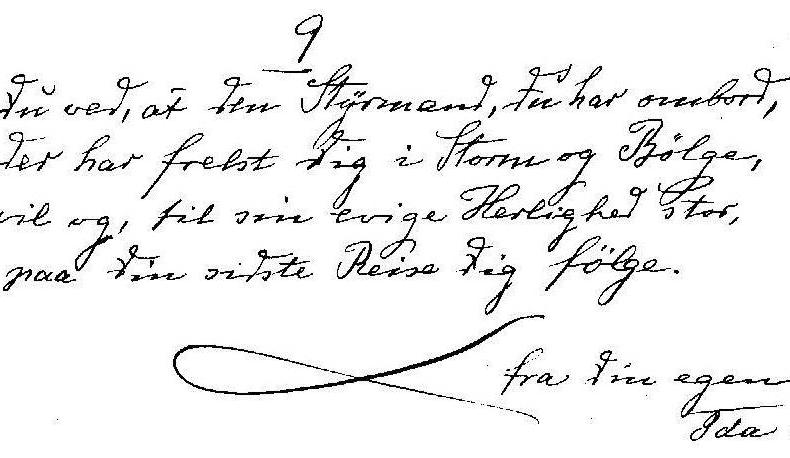 9
du ved, at den Styrmand, du har ombord,
der har frelst dig i Storm og Bölge,
vil og, til sin evige Herlighed stor,
paa din sidste Reise dig fölge.
fra din egen
Ida